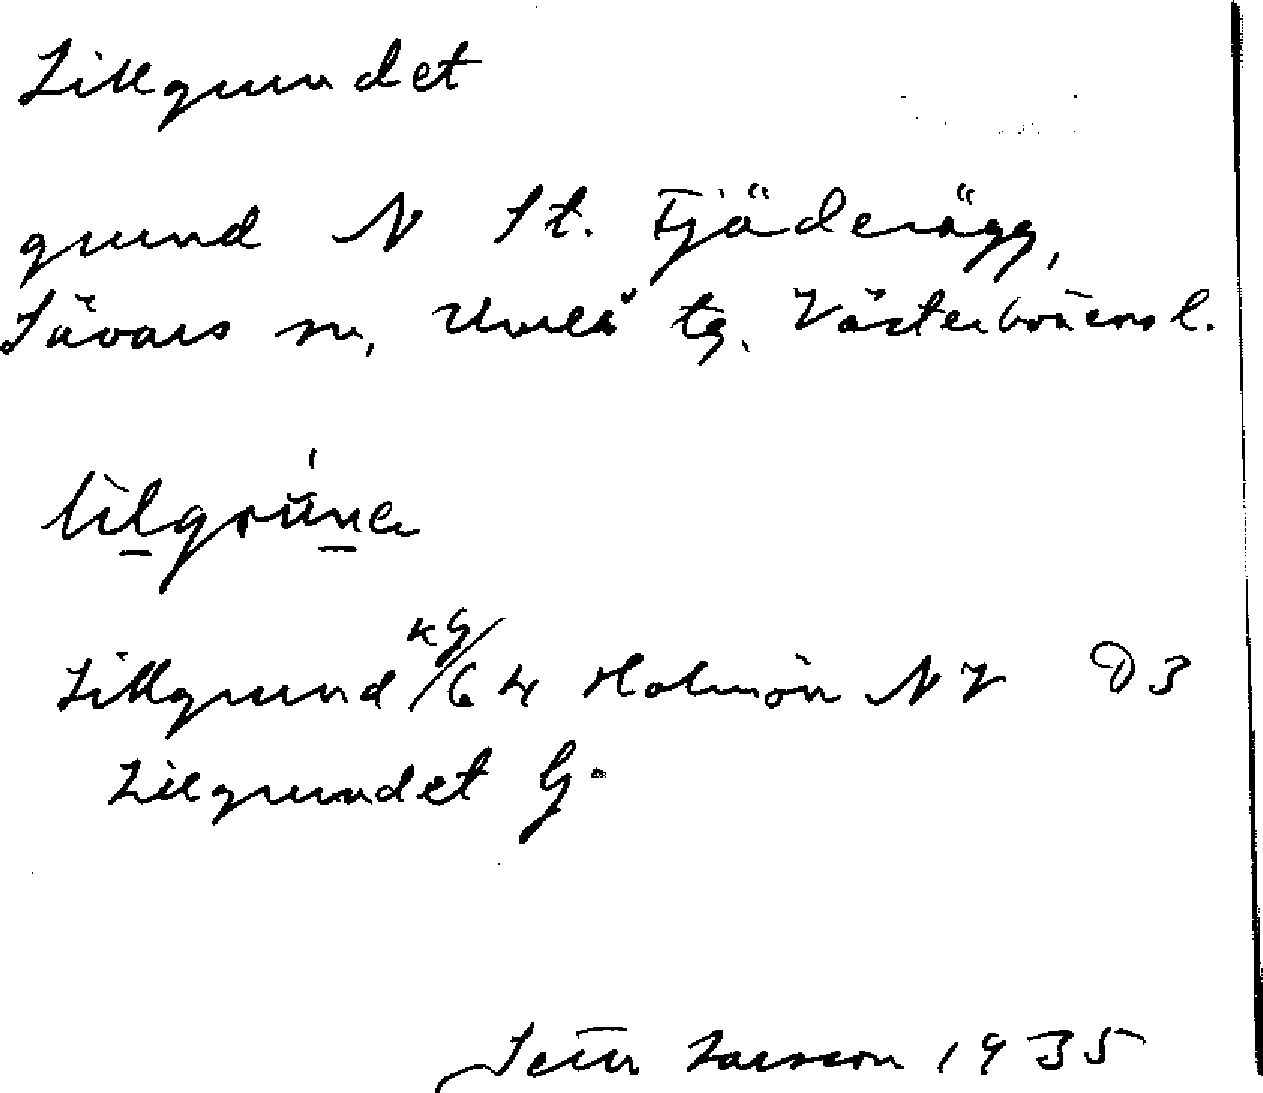 Lillgrundet
grund N St. Fjäderägg,
Sävars sn, Umeå tg. Västerbottens l.
lilgrúnа
Lillgrund KG/64 Holmön NV D3
Lillgrundet G.
Larsson 1935